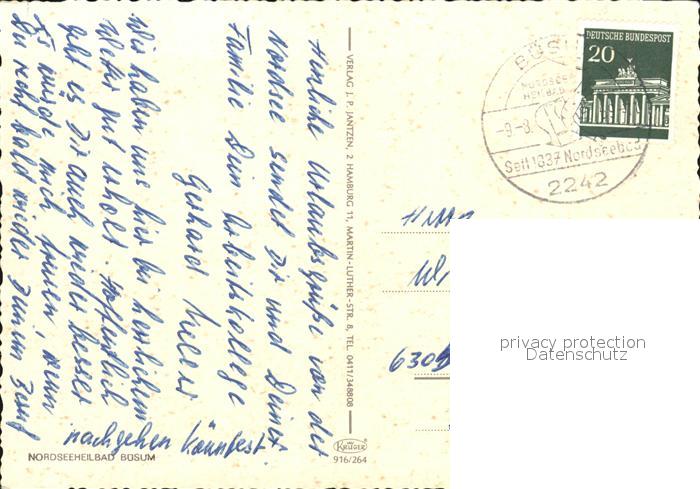 Herzliche Urlaubsgrüße von der
Nordsee sendet Dir und Deiner
Familie Dein Arbeitskollege
Gerhard
Wir haben uns hier bei herrlichem
Wetter gut erholt. Hoffentlich
geht es Dir auch wieder besser
Es würde mich freuen, wenn
Du recht bald wieder Deinem Beruf
nachgehen könntest.
NORDSEEHEILBAD BÜSUM
VERLAG J. P. JANTZEN, 2 HAMBURG 11, MARTIN-LUTHER-STR. 8, TEL. 0411/348808
KRÜGER
916/264
DEUTSCHE BUNDESPOST
20
BÜSU
NORDSEE
HEILBAD
-9.-8.
Seit 1837 Nordseebad
2242
Herrn
630
privacy protection
Datenschutz